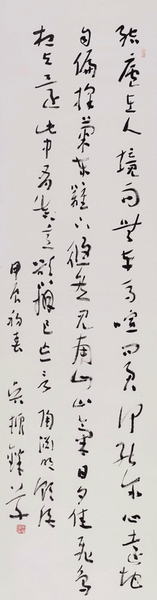 結廬在人境而無車馬喧問君何能尔心遠地
自偏採菊東籬下悠然見南山山氣日夕佳飛鳥
相与還此中有真意欲辨已忘言 陶淵明飲酒
甲辰初春 吴